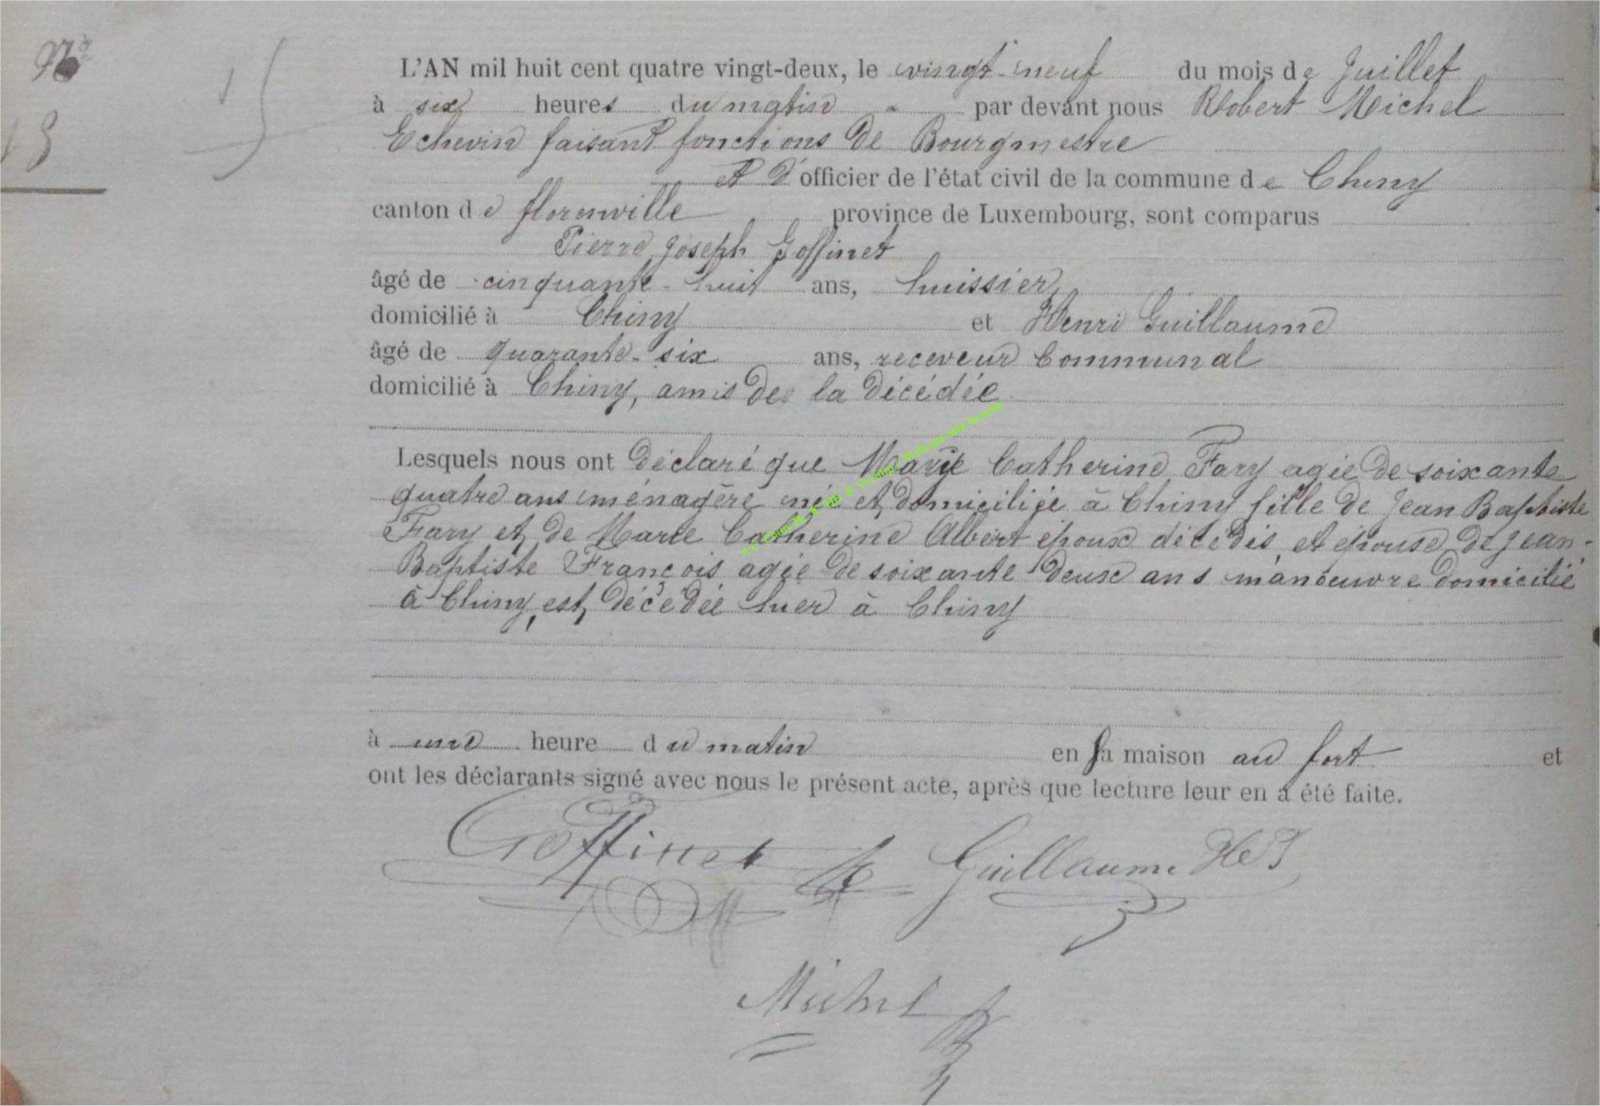 N°
18
L'AN mil huit cent quatre vingt-deux, le vingt-neuf du mois de Juillet
à six heures du matin par devant nous Robert Michel
Echevin faisant fonctions de Bourgmestre
et d'officier de l'état civil de la commune de Chiny
canton de florenville province de Luxembourg, sont comparus
Pierre Joseph Goffinet
âgé de cinquante-huit ans, huissier
domicilié à Chiny et Henri Guillaume
âgé de quarante-six ans, receveur Communal
domicilié à Chiny, amis de la décédée
Lesquels nous ont déclaré que Marie Catherine Fary agée de soixante
quatre ans ménagère née et domiciliée à Chiny fille de Jean Baptiste
Fary et de Marie Catherine Albert époux décédés, et épouse de Jean-
Baptiste François agée de soixante deux ans manœuvre domicilié
à Chiny, est, décédée hier à Chiny
à une heure du matin en sa maison au fort et
ont les déclarants signé avec nous le présent acte, après que lecture leur en a été faite.
Goffinet Guillaume
Michel